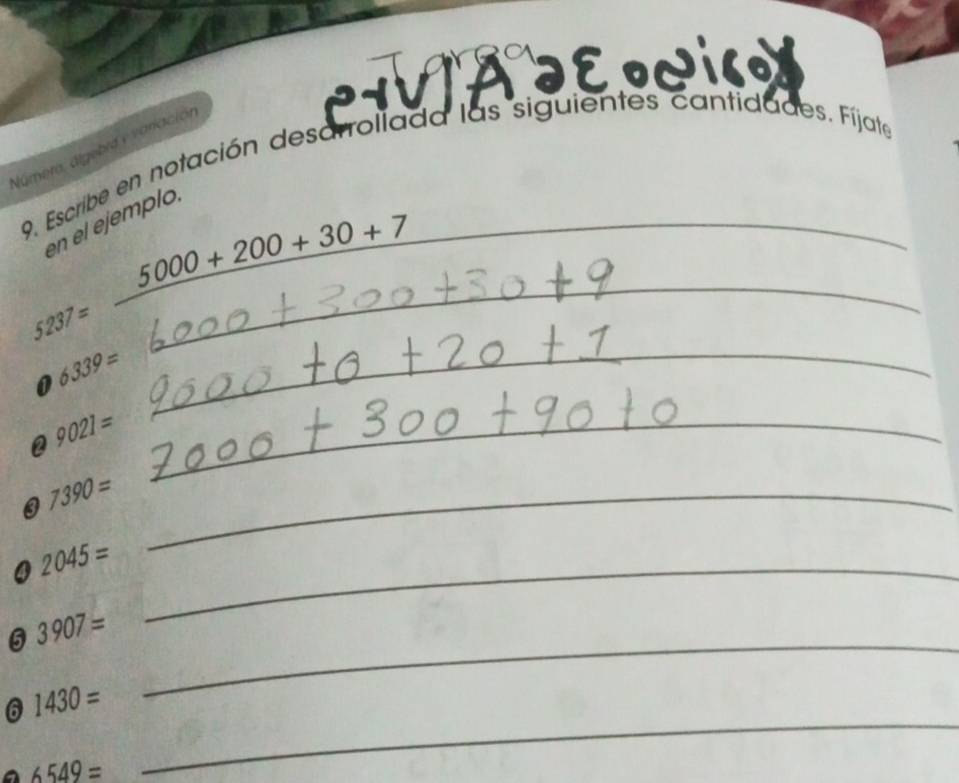 Tarea
Número, álgebra y variación
9. Escribe en notación desarrollada las siguientes cantidades. Fíjate
en el ejemplo.
5237 = 5000 + 200 + 30 + 7
1 6339 = 6000 + 300 + 30 + 9
2 9021 = 9000 + 0 + 20 + 1
3 7390 = 7000 + 300 + 90 + 0
4 2045 =
5 3907 =
6 1430 =
7 6549 =